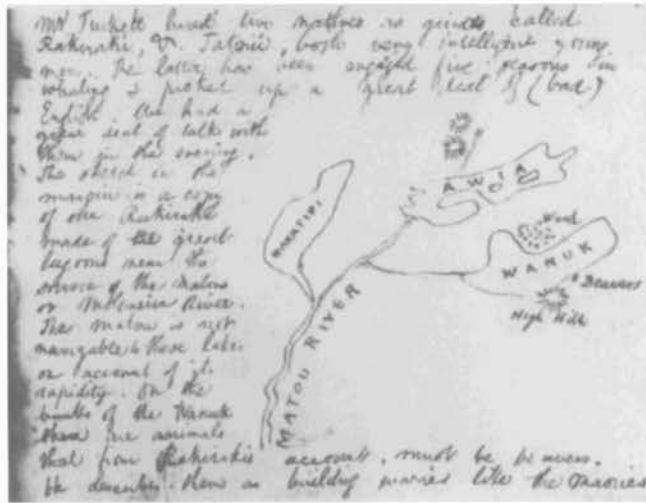 Mr Tuckett hired two natives as guides called
Rakiraki, & Tatoui, both very intelligent young
men. The latter has been engaged five seasons in
whaling & picked up a great deal of (bad)
English. We had a
great deal of talk with
them in the evening.
The sketch in the
margin is a copy
of one Rakiraki
made of the great
lagoons near the
source of the Matou
or River.
The Matou is not
navigable to these lakes
on account of its
rapidity. On the
banks of the Wanuk
there are animals
that from Rakirakis account, must be beavers.
he describes them as building warries like the Maories
WAKATIPI
AWIA
Wood
WANUK
Beavers
High Hills
MATOU RIVER